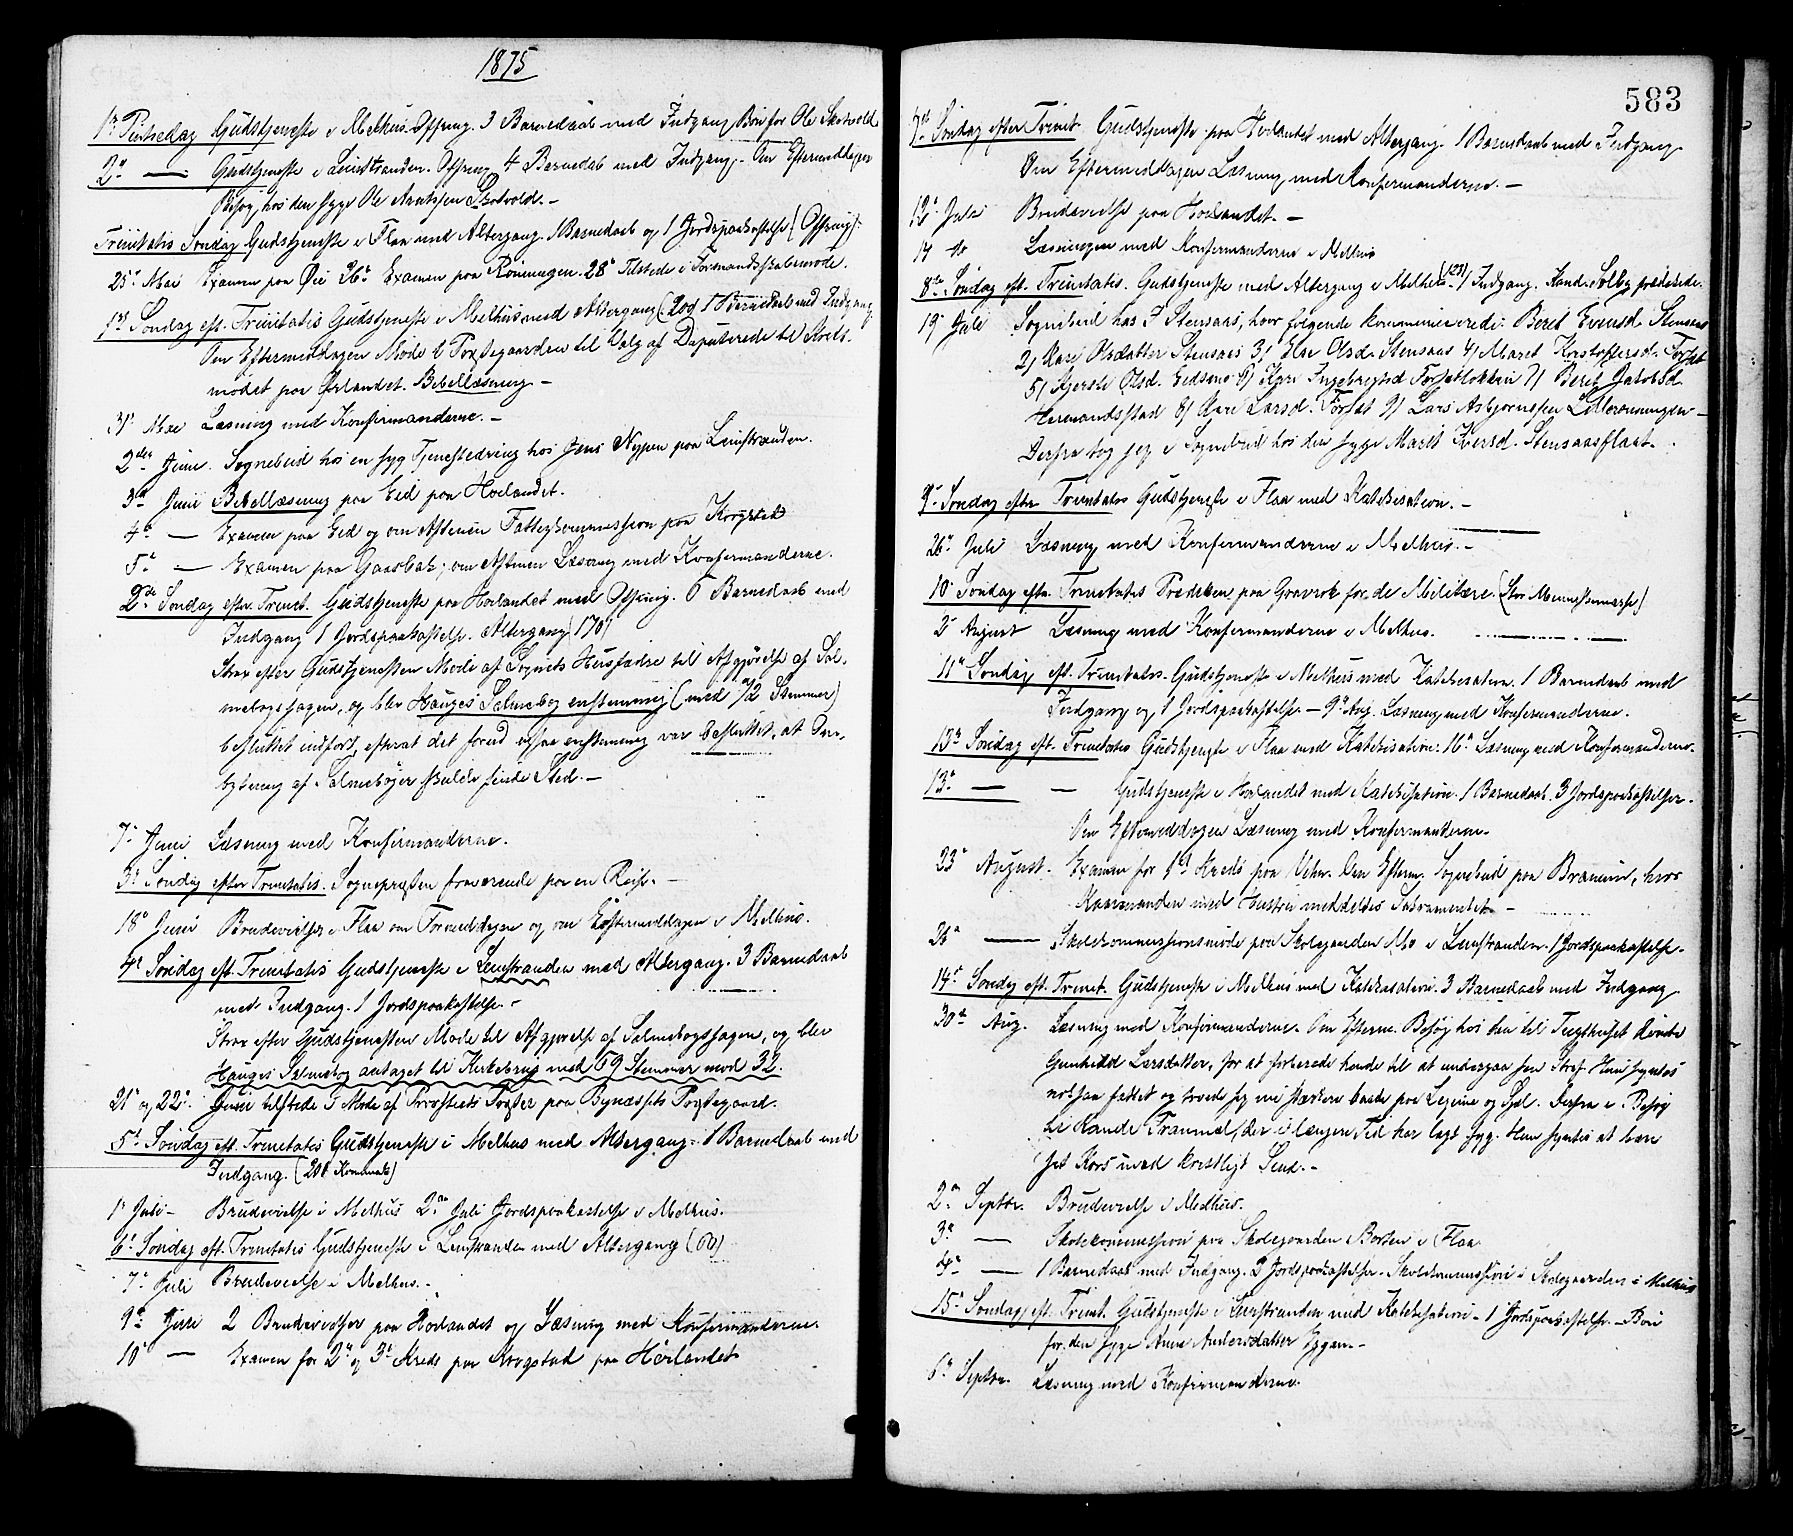 1875
1ste Pintsedag Gudstjeneste i Melhus. Offring. 3 Barnedaab med Indgang. Bøn for Ole Skotvold
2den — Gudstjeneste i Leinstranden. Offring. 4 Barnedaab med Indgang. Om Eftermiddagen
Besøg hos den syge Ole Arntssen Skotvold. —
Trinitatis Søndag Gudstjeneste i Flaa med Altergang. 1 Barnedaab og 1 Jordspaakastelse (Offring).
25de Mai Examen paa Øie 26de Examen paa Rønningen. 28de Tilstede i Formandskabsmøde.
1ste Søndag eft. Trinitatis Gudstjeneste i Melhus med Altergang (209) 1 Barnedaab med Indgang
Om Eftermiddagen Møde i Præstegaarden til Valg af Deputerede til Kreds-
mødet paa Ørlandet. Bibellæsning —
31te Mai Læsning med Konfirmanderne. —
2den Juni. Sognebud hos en syg Tjenestedreng hos Jens Nypen paa Leinstranden.
3die Juni Bibellæsning paa Eid paa Hølandet.
4de — Examen paa Eid og om Aftenen Fattigkommission paa Krogstad
5te — Examen paa Gaasbak; om Aftenen Læsning med Konfirmanderne.
2den Søndag efter Trinit. Gudstjeneste paa Hølandet med Offring. 6 Barnedaab med
Indgang 1 Jordspaakastelse. Altergang (170)
Strax efter Gudstjenesten Møde af Sognets Husfædre til Afgjørelse af Sal-
mebogssagen, og blev Hauges Salmebog enstemmig (med 72 Stemmer)
besluttet indført, efterat det forud ogsaa enstemmig var besluttet, at Om-
bytning af Salmebøger skulde finde Sted. —
7de Juni Læsning med Konfirmanderne.
3die Søndag efter Trinitatis. Sognepræsten fraværende paa en Reise. —
18de Juni Brudevielse i Flaa om Formiddagen og om Eftermiddagen i Melhus.
4de Søndag eft. Trinitatis Gudstjeneste i Leinstranden med Altergang. 3 Barnedaab
med Indgang. 1 Jordspaakastelse. —
Strax efter Gudstjenesten Møde til Afgjørelse af Salmebogssagen, og blev
Hauges Salmebog antaget til Kirkebrug med 69 Stemmer mod 32.
21de og 22de Juni tilstede i Møde af Provstiets Præster paa Bynæssets Præstegaard.
5te Søndag eft. Trinitatis Gudstjeneste i Melhus med Altergang. 1 Barnedaab med
Indgang. (208 Kommunik.)
1ste Juli — Brudevielse i Melhus 2den Juli Jordspaakastelse i Melhus.
6te Søndag eft. Trinitatis Gudstjeneste i Leinstranden med Altergang (60)
7de Juli Brudevielse i Melhus. —
9de Juli 2 Brudevielser paa Hølandet og Læsning med Konfirmanderne.
10de — Examen for 2den og 3die Kreds paa Krogstad paa Hølandet
583
7de Søndag efter Trinit. Gudstjeneste paa Hølandet med Altergang. 1 Barnedaab med Indgang.
Om Eftermiddagen Læsning med Konfirmanderne. —
12te Juli Brudevielse paa Hølandet. —
14 do Læsningen med Konfirmanderne i Melhus
8de Søndag eft. Trinitatis. Gudstjeneste med Altergang i Melhus (123) 1 Indgang. Kand. Solby prædikede.
19de Juli Sognebud hos J. Stensaas, hvor følgende kommunicerede: Beret Evensd. Stensaas
2) Kari Olsdatter Stensaas 3) Else Olsd. Stensaas 4) Maret Kristoffersd. Forsæt
5) Kjersti Olsd. Eidsmo 6) Kari Ingebrigtsd. Forsætløkken 7) Beret Jakobsd.
Hermandsstad 8) Kari Larsd. Forsæt 9) Lars Asbjørnssen Lillerønningen —
Derfra tog jeg i Sognebud hos den syge Marit Iversd. Stensaasflaat.
9de Søndag efter Trinitatis Gudstjeneste i Flaa med Katekisation. —
26de Juli Læsning med Konfirmanderne i Melhus. —
10de Søndag efter Trinitatis Prædiken paa Gravrok for de Militære. (Stor Menneskemasse)
2den August Læsning med Konfirmanderne i Melhus.
11te Søndag eft. Trinitatis. Gudstjeneste i Melhus med Katekisation. 1 Barnedaab med
Indgang og 1 Jordspaakastelse — 9de Aug. Læsning med Konfirmanderne.
12te Søndag eft. Trinitatis Gudstjeneste i Flaa med Katekisation. 16de Læsning med Konfirmanderne.
13de — — Gudstjeneste i Hølandet med Katekisation. 1 Barnedaab. 3 Jordspaakastelser.
Om Eftermiddagen Læsning med Konfirmanterne.
23de August. Examen for 1ste Kreds paa Vehn. Om Efterm. Sognebud paa Bræmen, hvor
Kaarmanden med Hustru meddeltes Sakramentet. —
26de — Skolekommissionsmøde paa Skolegaarden Mo i Leinstranden. 1 Jordspaakastelse.
14de Søndag eft. Trinit. Gudstjeneste i Melhus med Katekisation. 3 Barnedaab med Indgang
30te Aug. Læsning med Konfirmanderne. Om Efterm. Besøg hos den til Tugthuset dømte
Gunhild Larsdatter, for at forberede hende til at undergaa sin Straf. Hun syntes
nok saa fattet og troede sig nu stærkere baade paa Legeme og Sjæl. Derfra i Besøg
til Kande Trammel, der i længere Tid har lagt syg. Hun syntes at bære
sit Kors med kristeligt Sind. —
2den Septbr. Brudevielse i Melhus.
3die — Skolekommission paa Skolegaarden Borten i Flaa
4de — 1 Barnedaab med Indgang. 2 Jordspaakastelse. Skolekommission i Skolegaarden i Melhus
15de Søndag eft. Trinit. Gudstjeneste i Leinstranden med Katekisation. 1 Jordspaakastelse. — Bøn
for den syge Anne Andersdatter Eggan. —
6te Septbr. Læsning med Konfirmanderne.